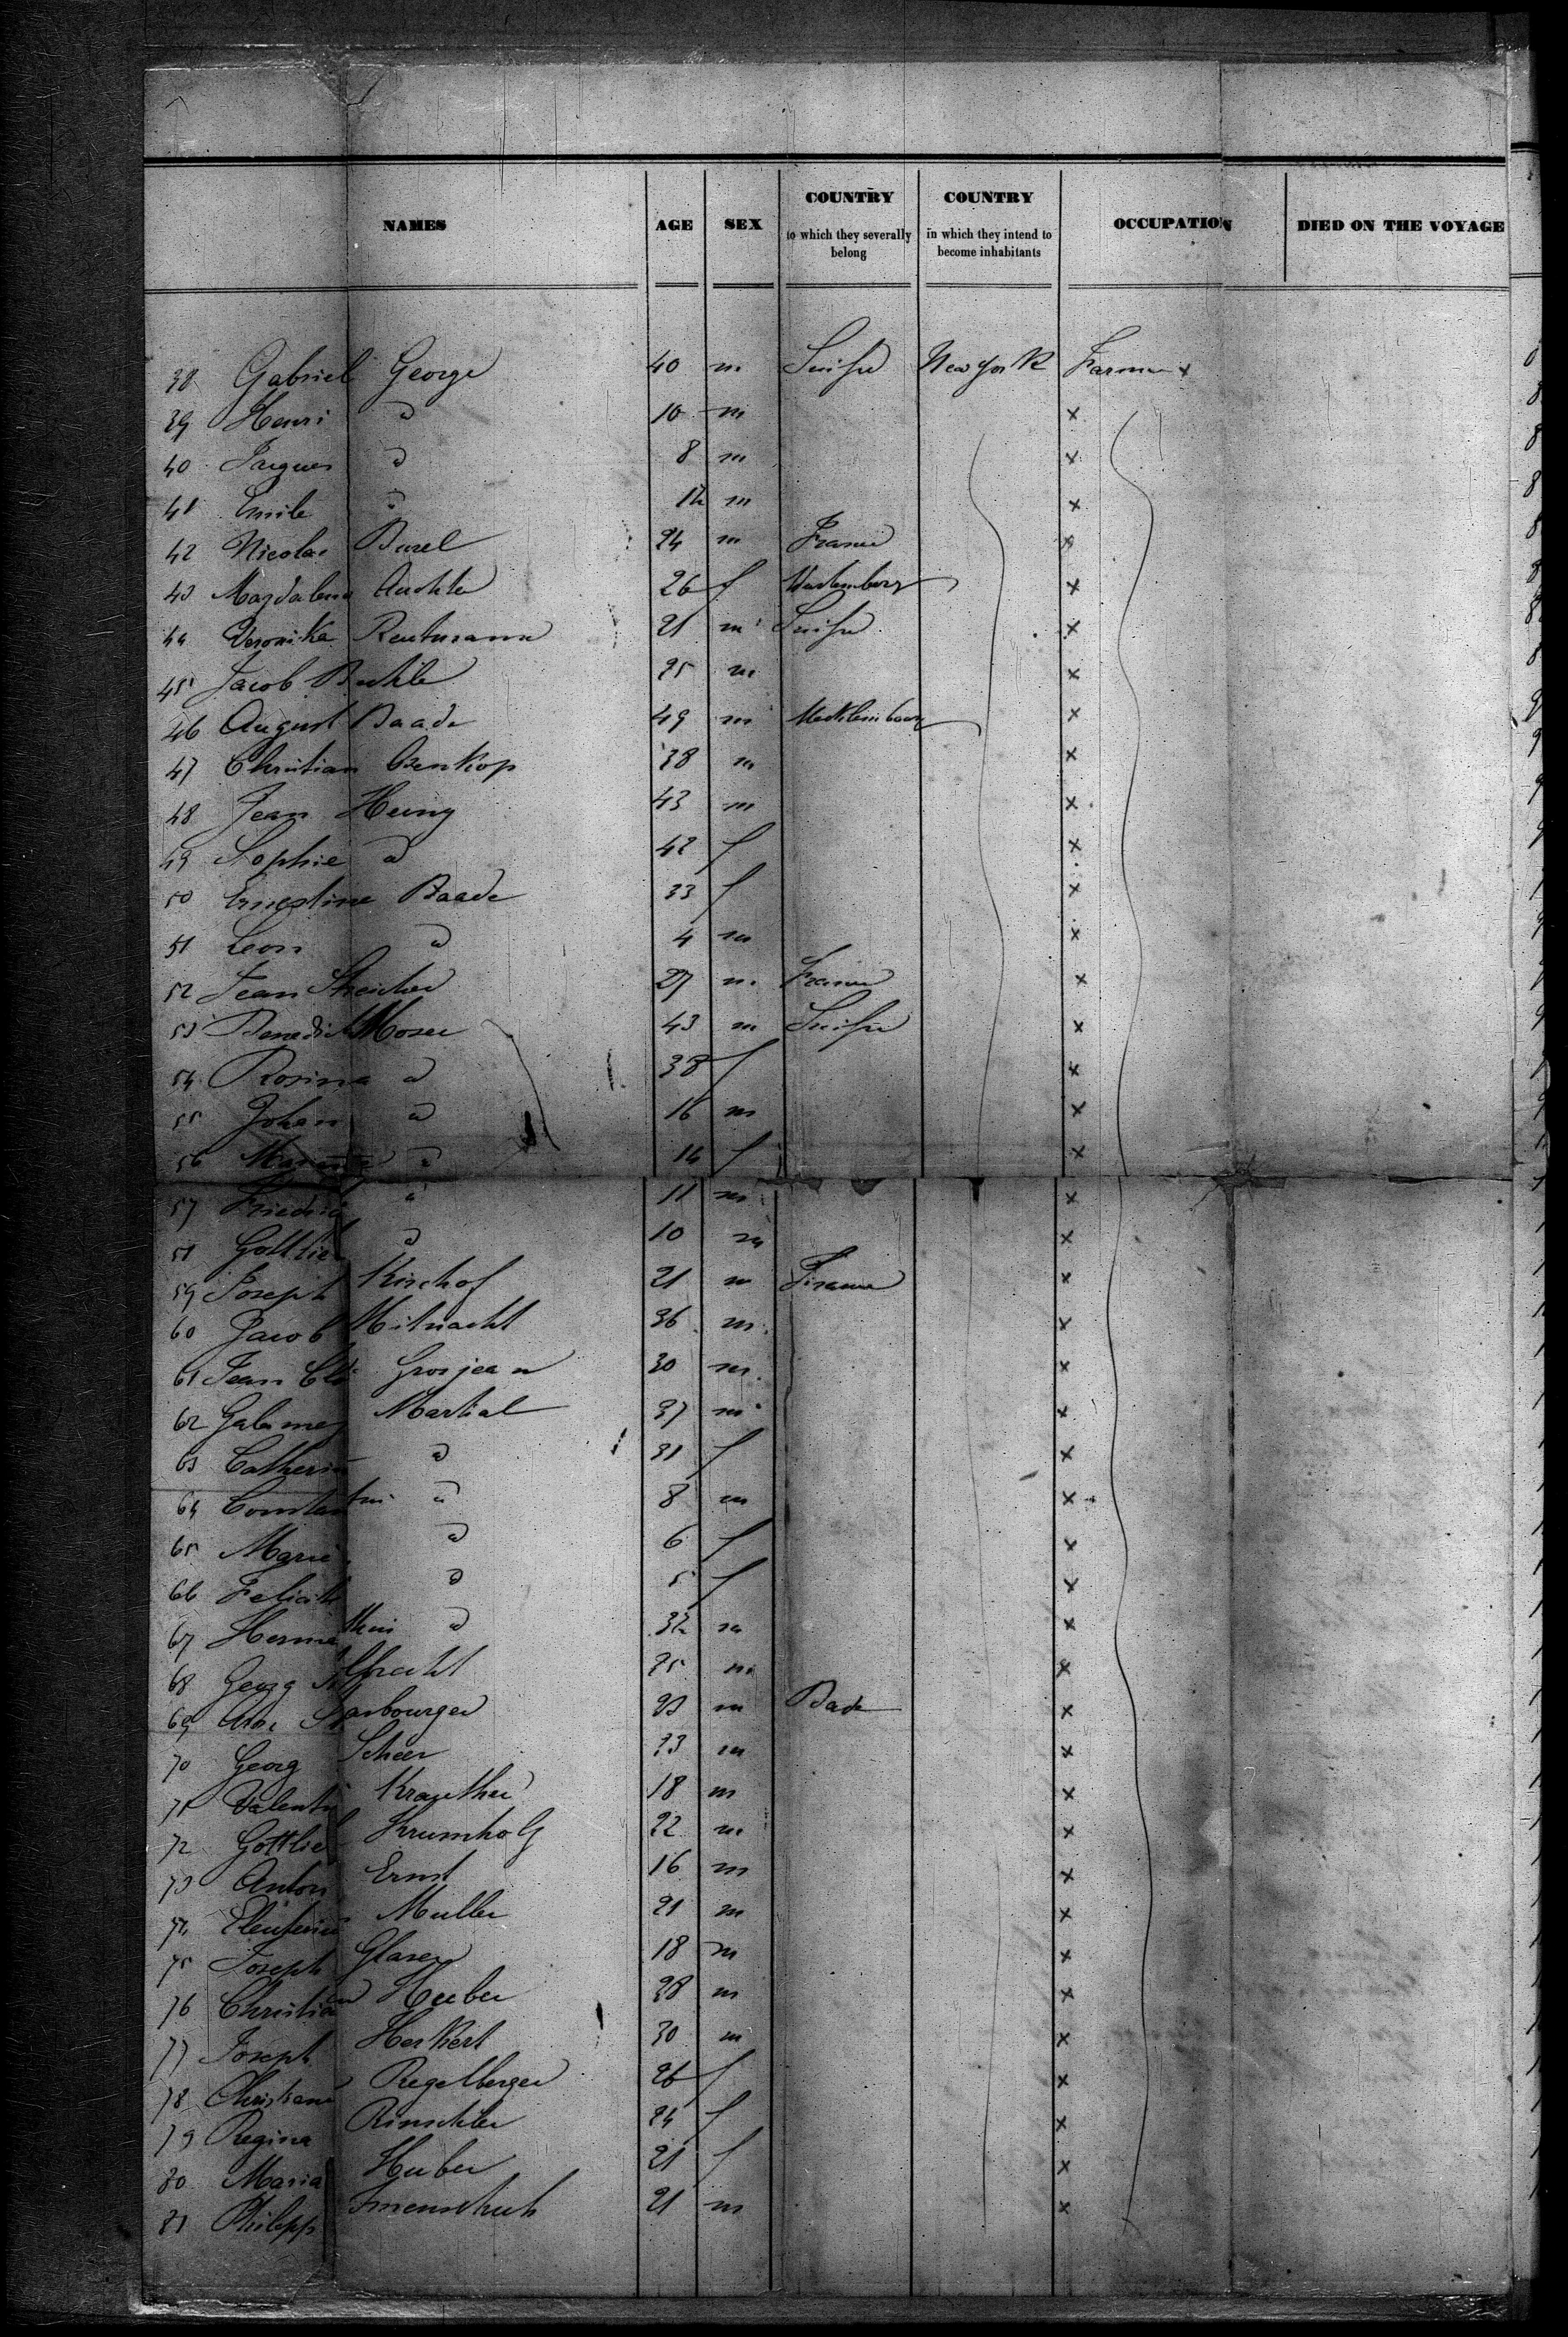 NAMES AGE SEX COUNTRY to which they severally belong COUNTRY in which they intend to become inhabitants OCCUPATION DIED ON THE VOYAGE
38 Gabriel George 40 m Suisse New york Farmer x
39 Henri d 10 m x
40 Jacques d 8 m x
41 Emile d m x
42 Nicolas Burel 24 m France x
43 Magdalena 26 f Wurtemberg x
44 Veronika Reutmann 21 m Suisse x
45 Jacob 25 m x
46 August Baade 49 m Mecklembourg x
47 Christian 38 m x
48 Jean 43 m x
49 Sophie d 42 f x
50 Ernestine Baade 33 f x
51 Leon d 4 m x
52 Jean Streicher 27 m France x
53 Benedict Moser 43 m Suisse x
54 Rosina d 38 f x
55 Johan d 16 m x
56 d 14 f x
57 Friedric d 11 m x
58 Gottlieb d 10 m x
59 Joseph Kirschof 21 m France x
60 Jacob Mitnacht 36 m x
61 Jean Cld Grosjean 30 m x
62 Martial 37 m x
63 Catherin d 31 f x
64 Constantin d 8 m x
65 Marie d 6 f x
66 Felicite d 5 f x
67 d 32 m x
68 Georg 25 m x
69 m Bade x
70 Georg Scheer 23 m x
71 Valentin Krauther 18 m x
72 Gottlieb Krumholz 22 m x
73 Anton Ernst 16 m x
74 Muller 21 m x
75 Joseph Glaser 18 m x
76 Christian Huber 28 m x
77 Joseph Herkert 30 m x
78 Christiana Regelberger 26 f x
79 Regina Rinschler 24 f x
80 Maria Huber 21 f x
81 Philipp 21 m x